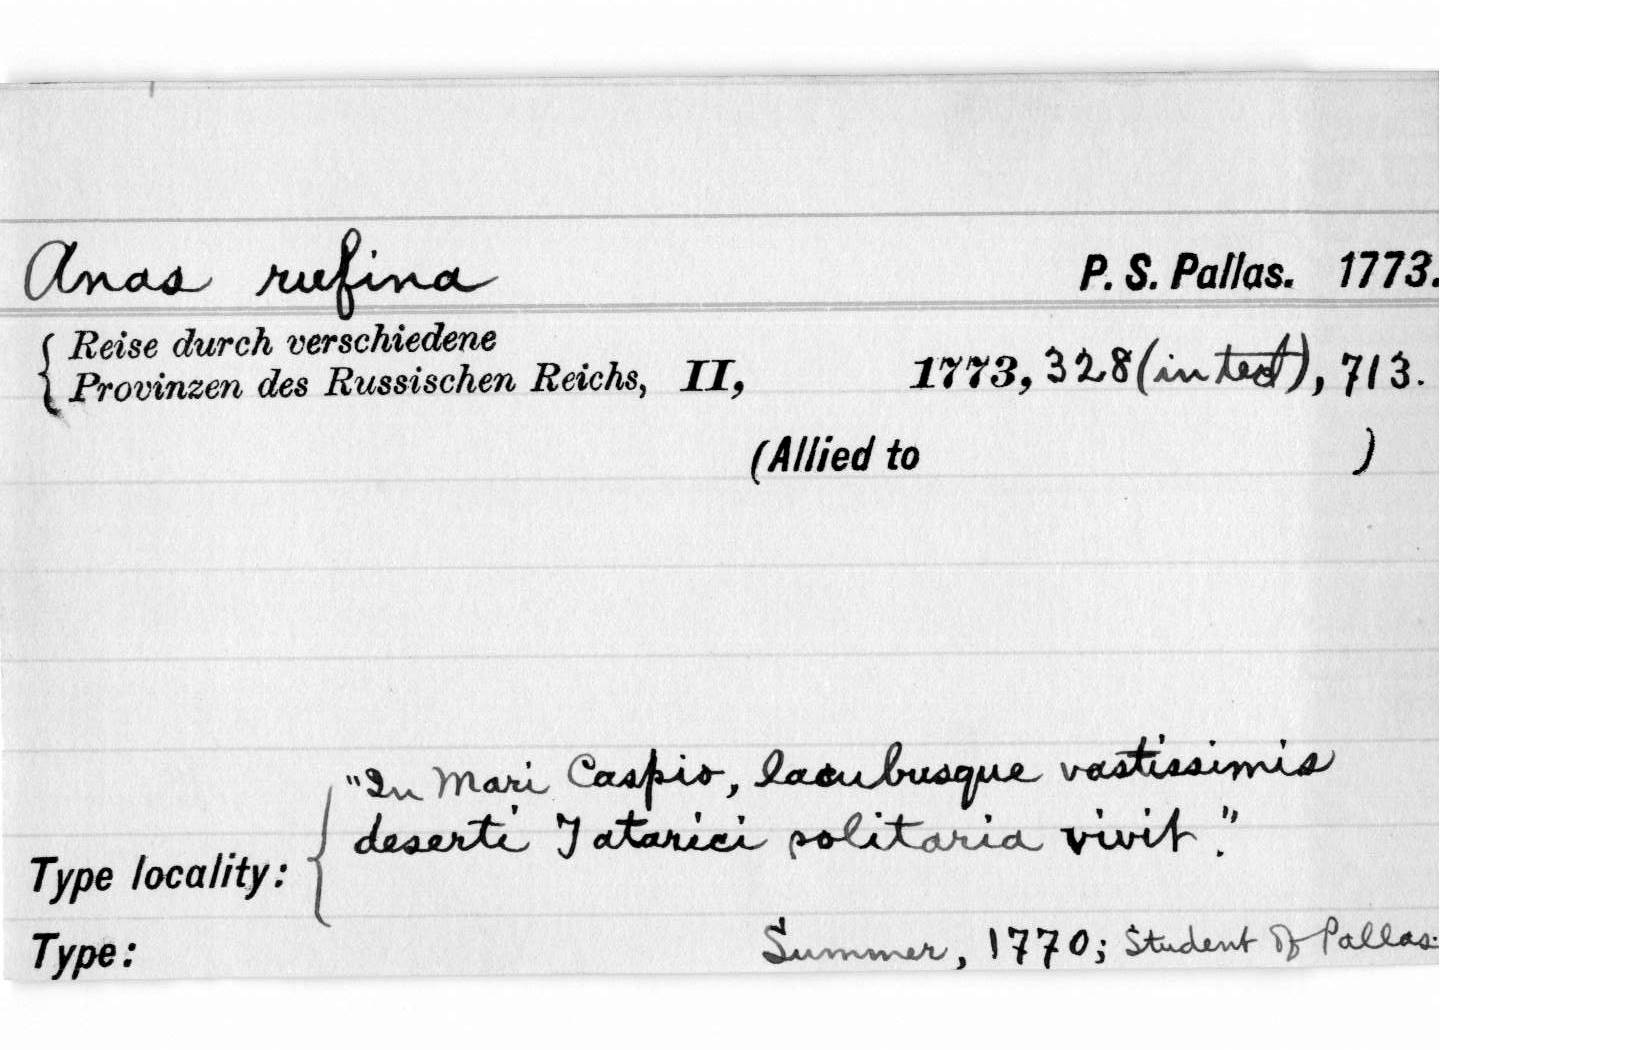 Anas rufina P. S. Pallas. 1773.
Reise durch verschiedene
Provinzen des Russischen Reichs, II, 1773, 328 (in text), 713.
(Allied to )
"In Mari Caspio, lacubusque vastissimis
deserti Tatarici solitaria vivit."
Type locality:
Type: Summer, 1770; Student of Pallas.